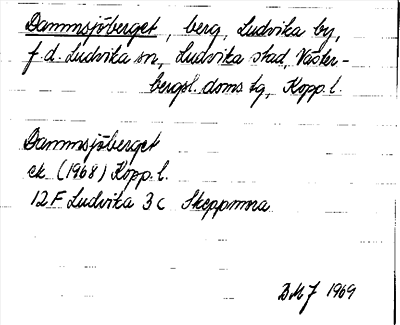 Dammsjöberget, berg, Ludvika by,
f.d. Ludvika sn, Ludvika stad, Väster-
bergsl. doms tg, Kopp. l.
Dammsjöberget
ek (1968) Kopp. l.
12F Ludvika 3c Skeppmora
BMJ 1969